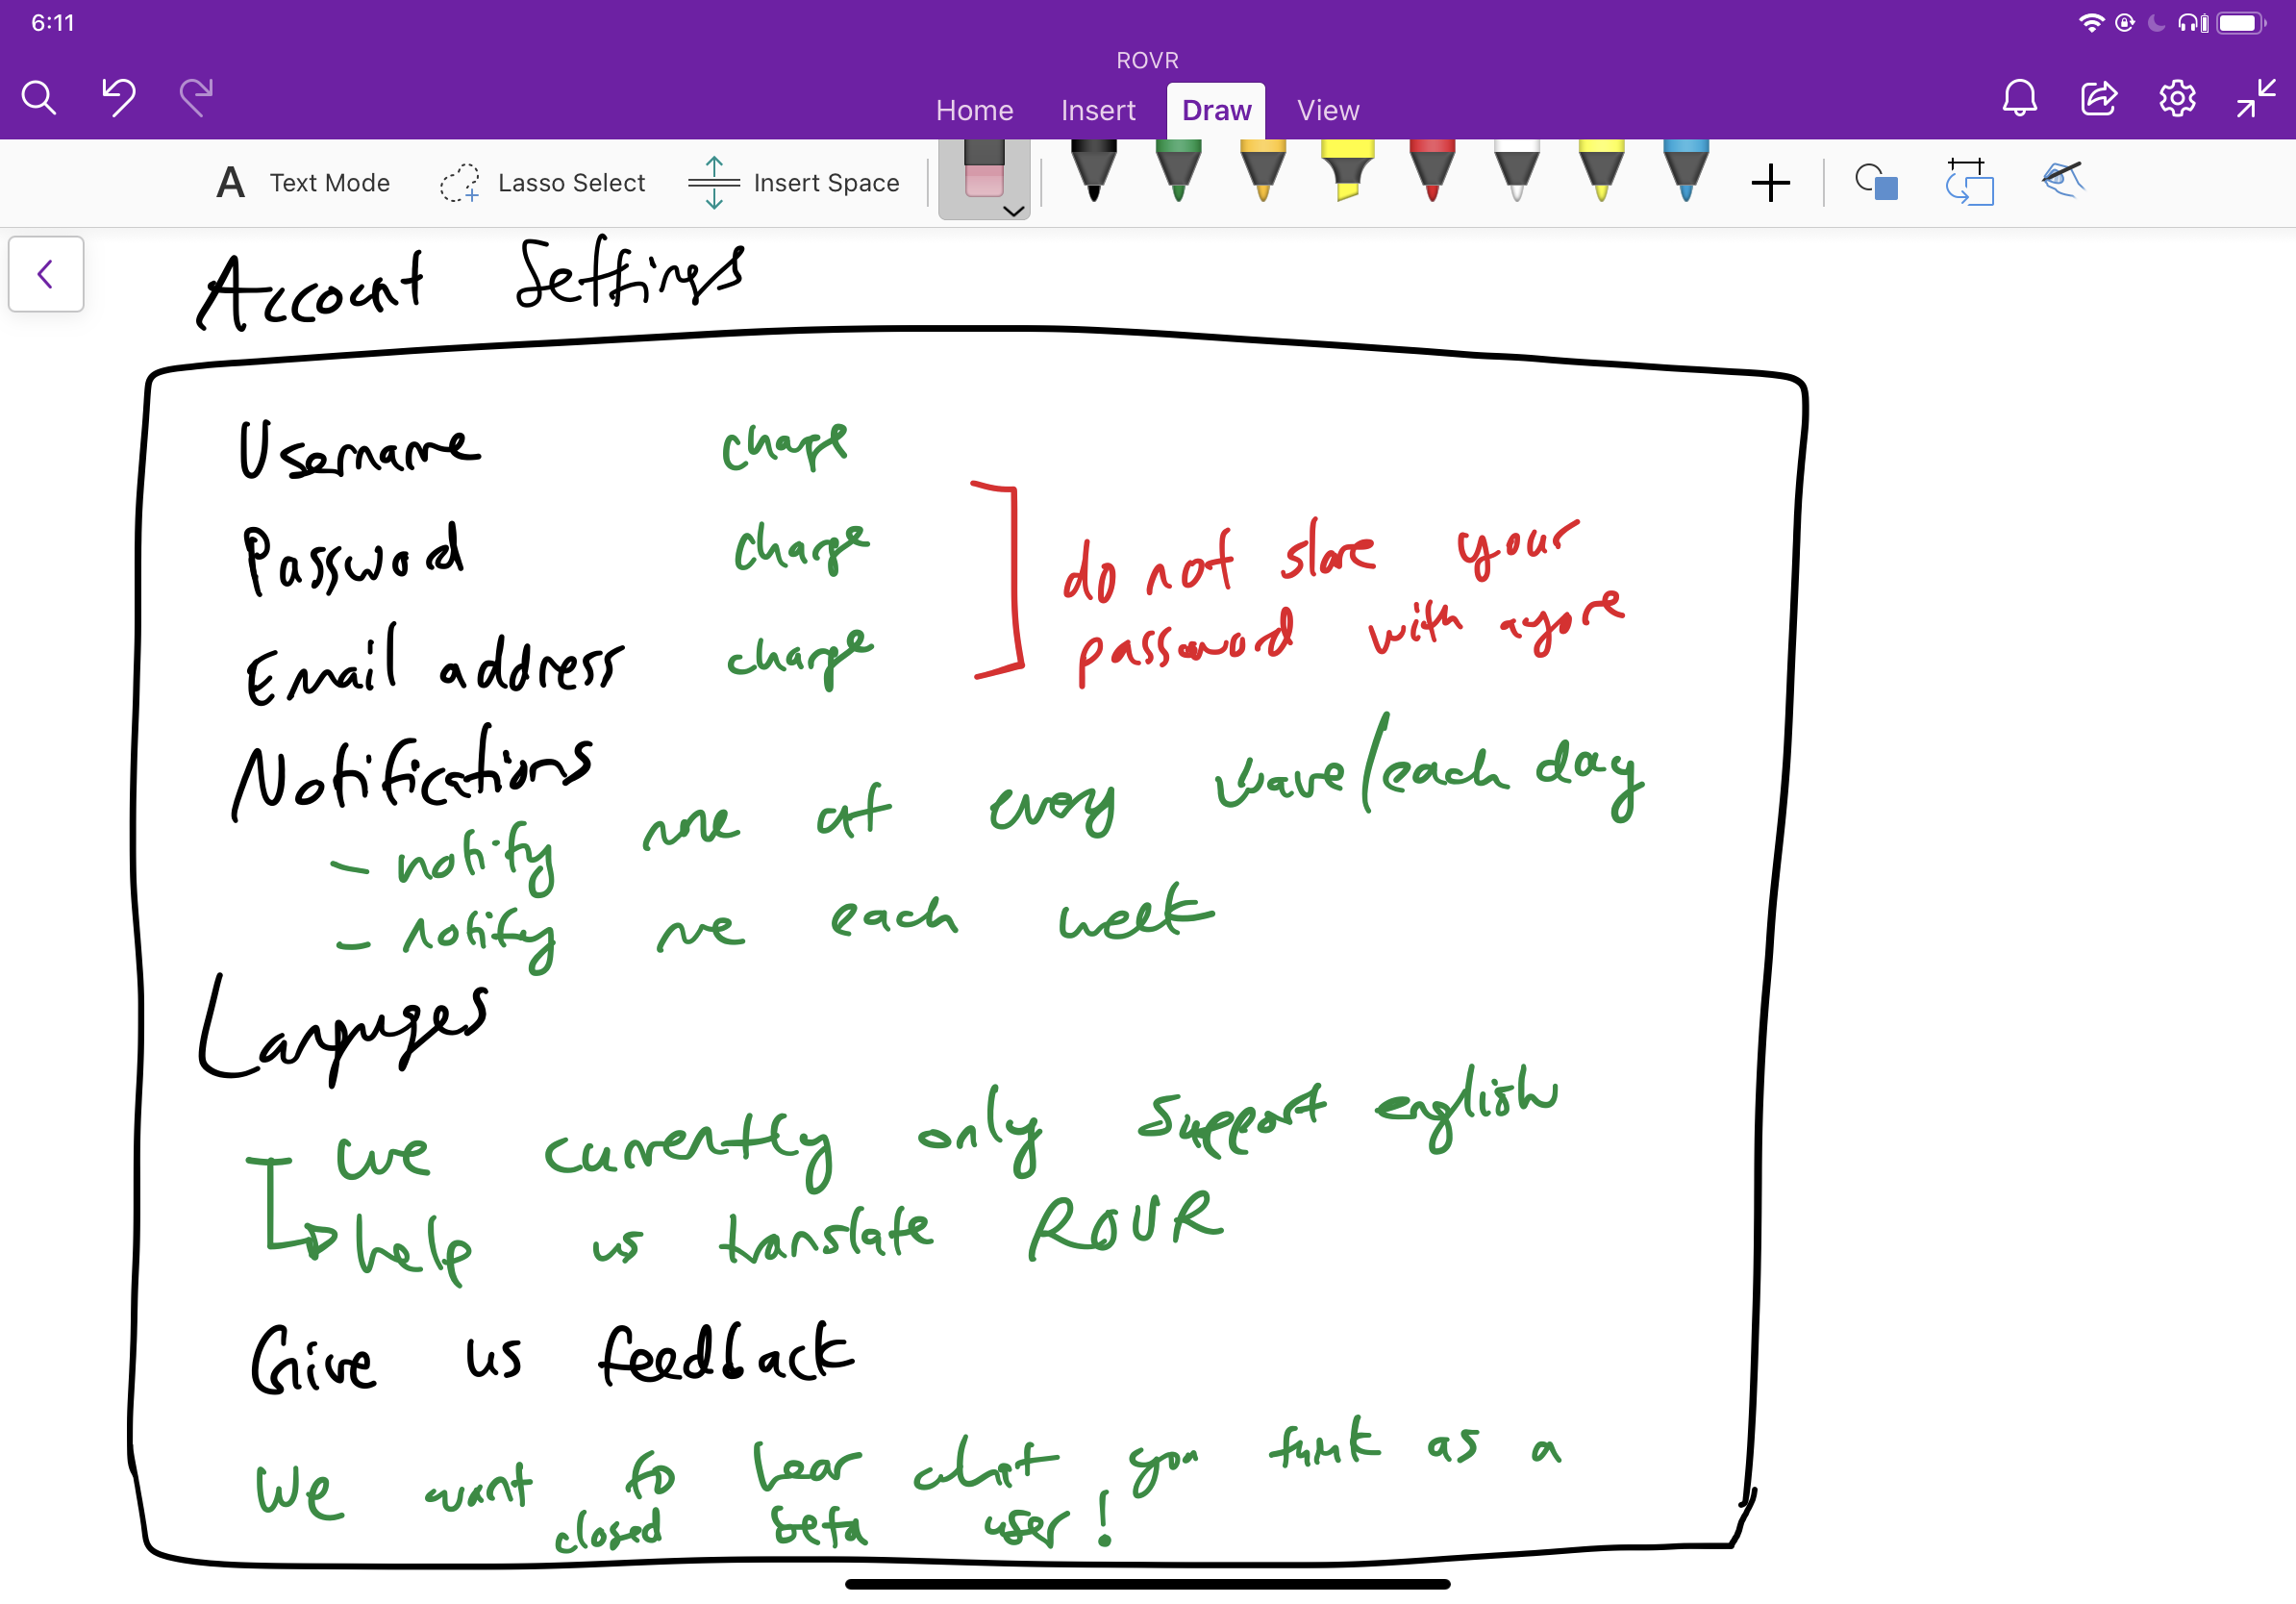 6:11
ROVR
Home Insert Draw View
A Text Mode Lasso Select Insert Space
Account Settings
Username change
Password change
Email address change
do not share your
password with anyone
Notifications
- notify me at every wave/each day
- notify me each week
Languages
we currently only support english
help us translate ROVR
Give us feedback
We want to hear what you think as a
closed beta user!